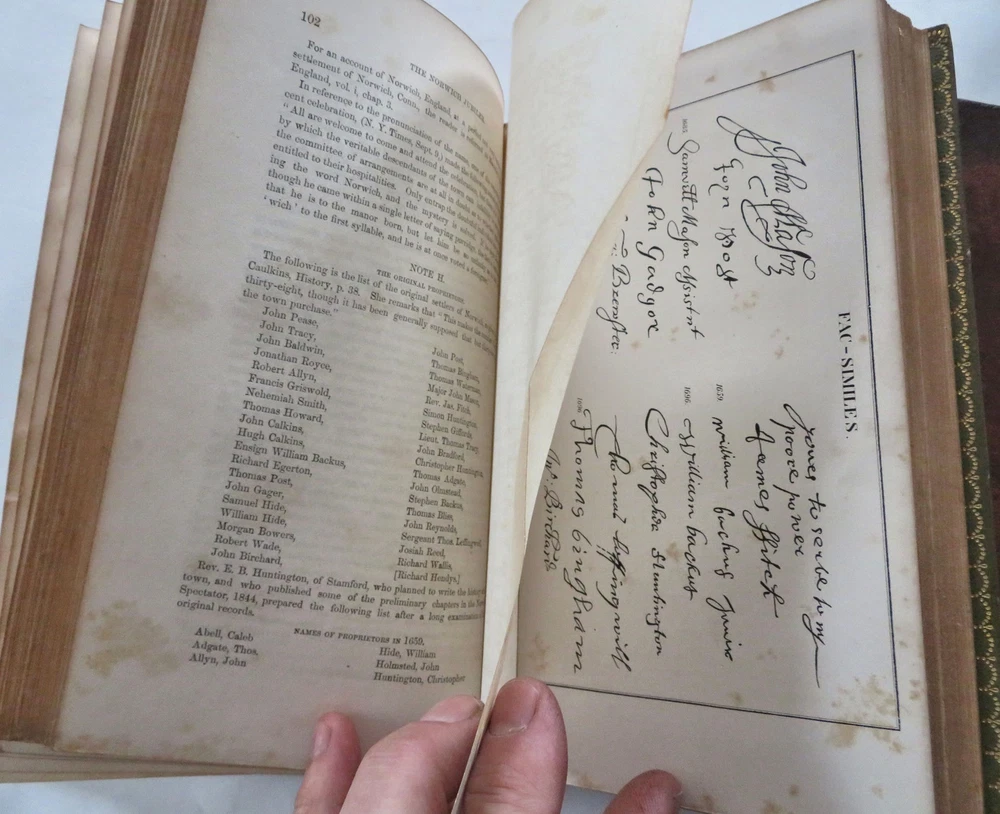 102
THE NORWICH JUBILEE.
For an account of Norwich, England, at a
settlement of Norwich, Conn., the reader is
England, vol. i, chap. 3.
In reference to the pronunciation of the name, one of
cent celebration, (N. Y. Times, Sept. 9,) made the
"All are welcome to come and attend the celebration,
by which the veritable descendants of the town can
the committee of arrangements are at all in doubt as to
entitled to their hospitalities. Only entrap the
ing the word Norwich, and the mystery is solved.
though he came within a single letter of saying porridge,
that he is to the manor born, but let him
'wich' to the first syllable, and he is at once voted a
NOTE H.
THE ORIGINAL PROPRIETORS.
The following is the list of the original settlers of Norwich,
Caulkins, History, p. 38. She remarks that "This makes the
thirty-eight, though it has been generally supposed that
the town purchase."
John Pease,
John Tracy,
John Baldwin,
Jonathan Royce,
Robert Allyn,
Francis Griswold,
Nehemiah Smith,
Thomas Howard,
John Calkins,
Hugh Calkins,
Ensign William Backus,
Richard Egerton,
Thomas Post,
John Gager,
Samuel Hide,
William Hide,
Morgan Bowers,
Robert Wade,
John Birchard,
John Post,
Thomas Bingham,
Thomas Waterman,
Major John Mason,
Rev. Jas. Fitch,
Simon Huntington,
Stephen Gifford,
Lieut. Thomas Tracy,
John Bradford,
Christopher Huntington,
Thomas Adgate,
John Olmstead,
Stephen Backus,
Thomas Bliss,
John Reynolds,
Sergeant Thos. Leffingwell,
Josiah Reed,
Richard Wallis,
[Richard Hendys.]
Rev. E. B. Huntington, of Stamford, who planned to write the history
town, and who published some of the preliminary chapters in the
Spectator, 1844, prepared the following list after a long examination
original records.
NAMES OF PROPRIETORS IN 1659.
Abell, Caleb
Adgate, Thos.
Allyn, John
Hide, William
Holmsted, John
Huntington, Christopher
FAC-SIMILES.
yours to serve to my
poore power
James Fitch
John Mason
John Post
1659 William backus Junior
Samuell Mason Assistant
1696 William backus
John Gadger
Christopher Huntington
Thomas leffingwell
1696 Thomas bingham
Jno. Birchard